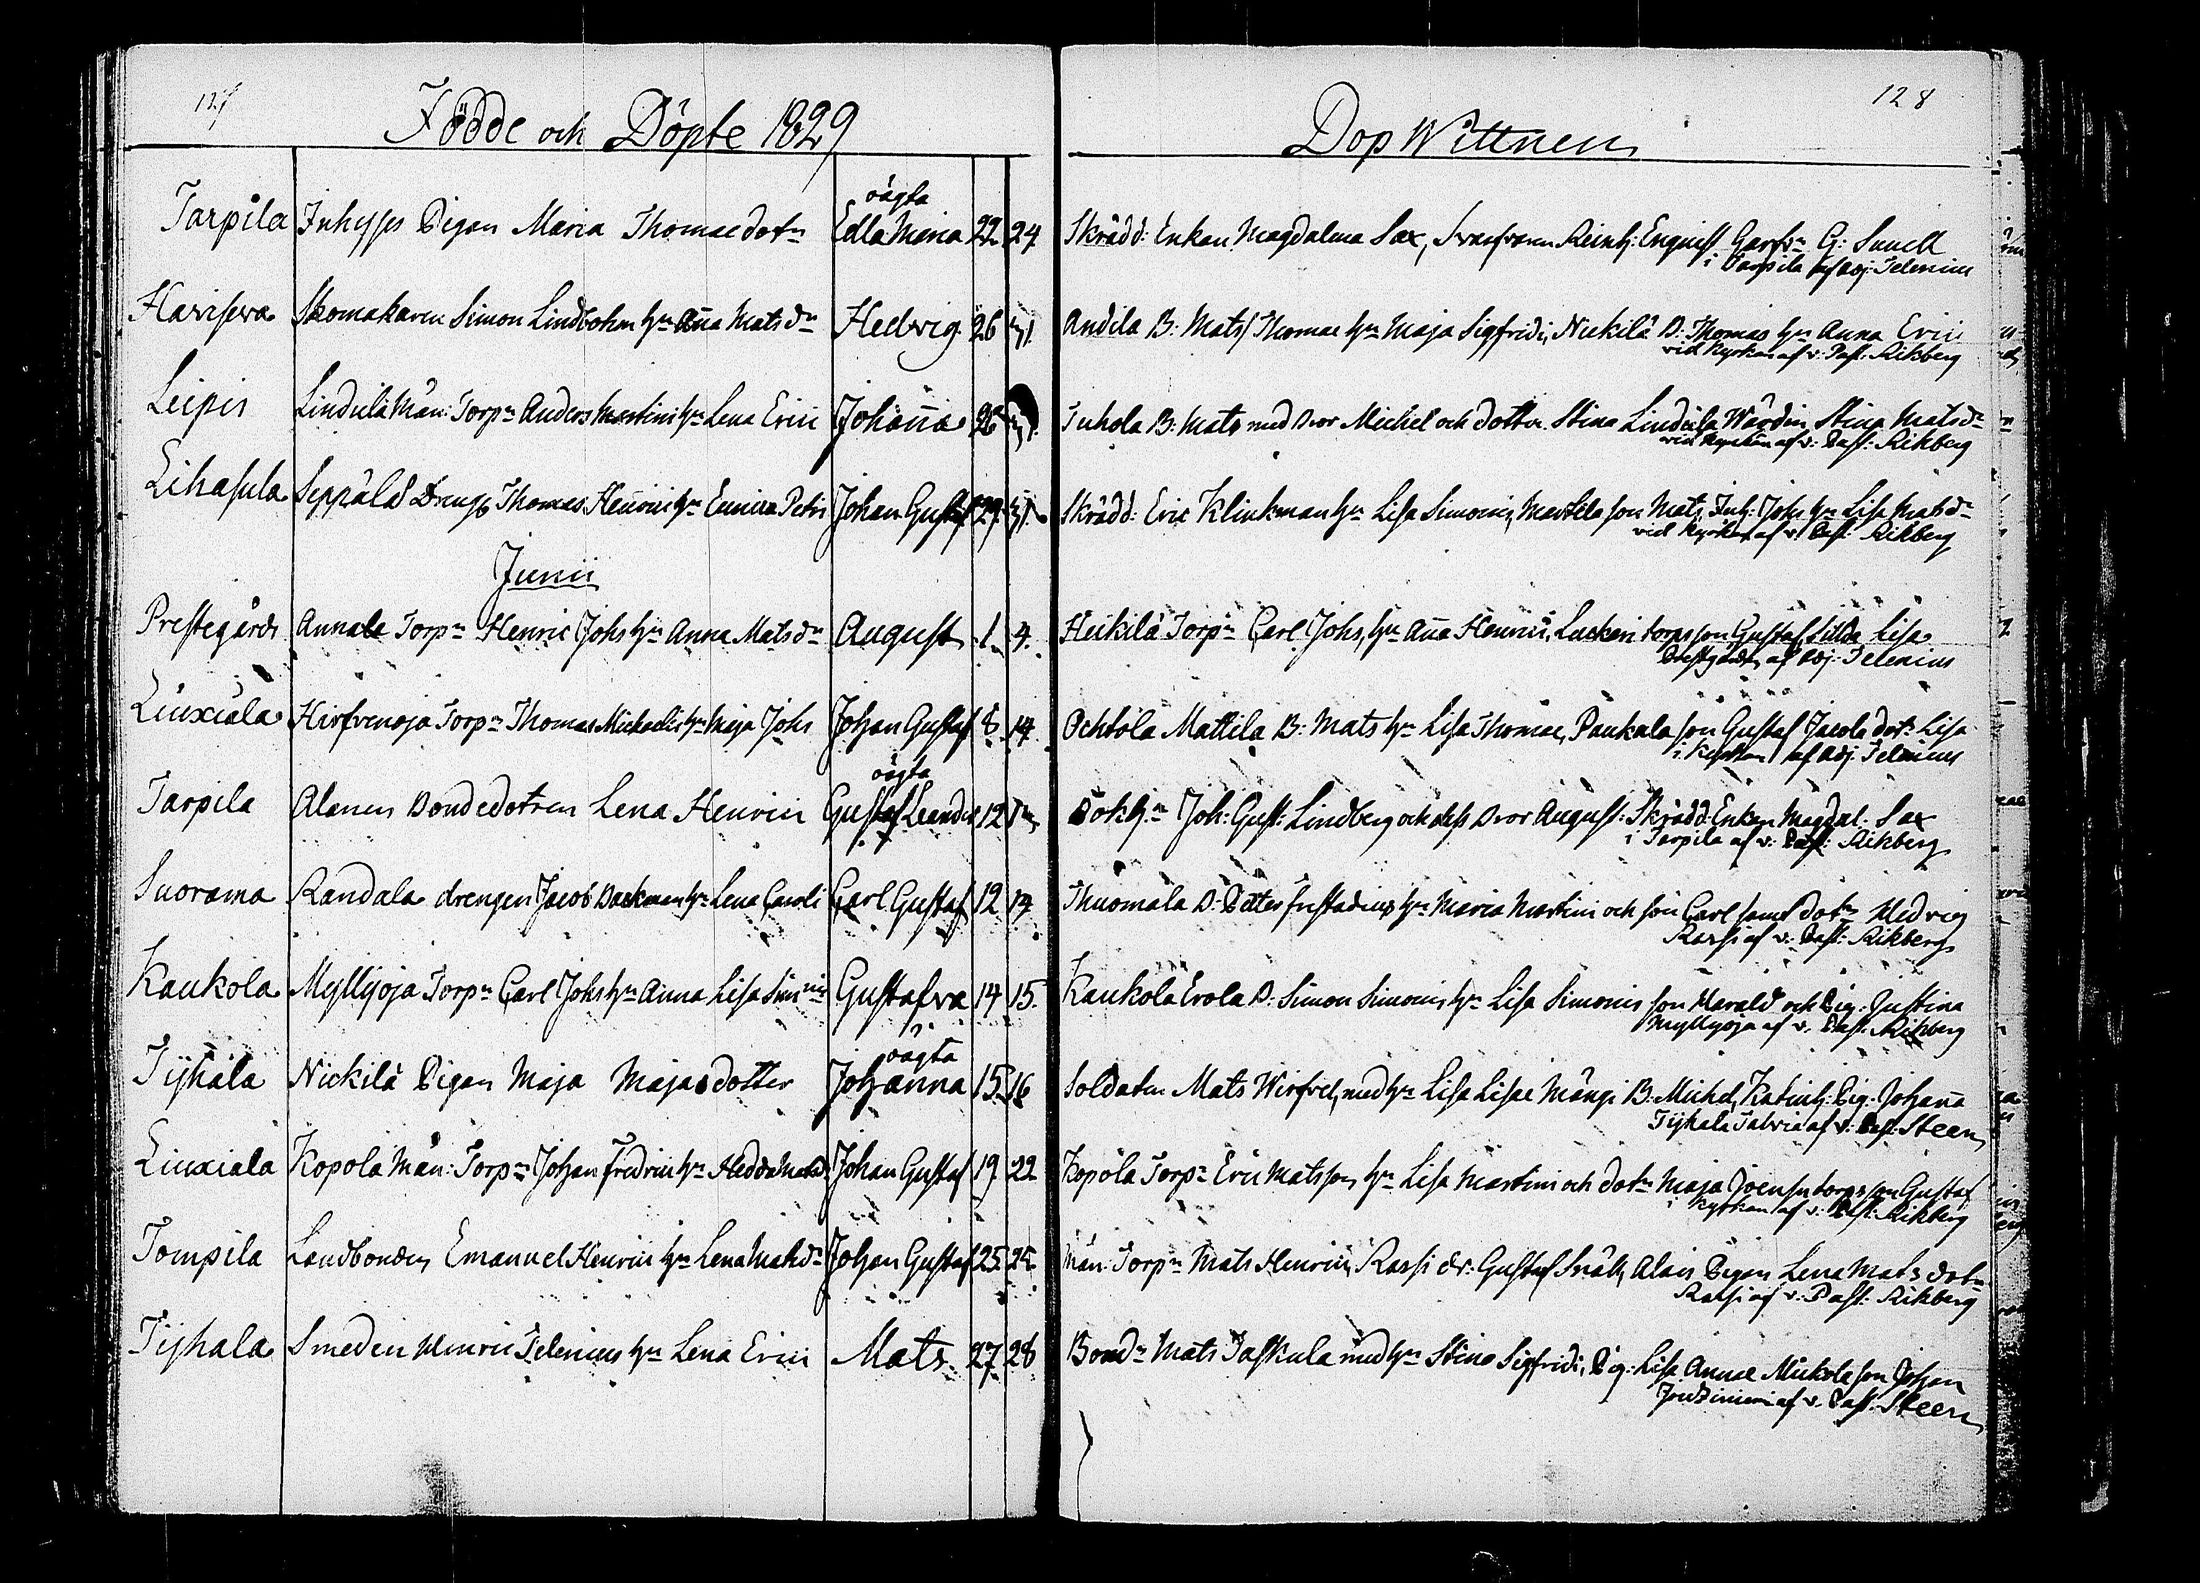 127
Födde och Döpte 1829
Tarpila Inhyses Pigan Maria Thomae dotn oägta Edla Maria 22 24
Hariserva Skomakaren Simon Lindbohm hn Anna Mats dn Hedvig 26 31
Leipis Lindula Mån: Torpn Anders Martini hn Lena Erici Johanna 26 31.
Lihasula Seppälä Dreng Thomas Henrici hn Petri Johan Gustaf 29 31
Junii
Prestegårds Annala Torpn Henric Johs hn Anna Mats dn August 1. 4.
Liuxiala Hirfvenoja Torpn Thomas Michaelis hn Maja Johs Johan Gustaf 8. 14.
Tarpila Alanen Bondedotren Lena Henrici oägta Gustaf Leander 12
Suorama Randala drengen Jacob Backman hn Lena Caroli Carl Gustaf 12 13
Kaukola Myllyoja Torpn Carl Johs hn Anna Lisa Carl Gustafva 14 15.
Tijhala Nickilä Pigan Maja Majas dotter oägta Johanna 15 16
Liuxiala Kopola Mån: Torpn Johan Fredric hn Hedda Johan Gustaf 19 22
Tompila Landbonden Emanuel Henrici hn Lena Mats dn Johan Gustaf 25 25
Tijhala Smeden Henric Telenius hn Lena Erici Mats 27 28
128
Dop Wittnen
Skrädd: Enkan Magdalena Sax, Svarfvaren Reinh: Enquist Garfvn G: Snell
i Tarpila af Adj: Telenius
Andila B: Mats Thomae hn Maja Sigfridi, Nickilä B: Thomas hn Anna Erici
vid Kyrkan af v: Past: Rikberg
Juhola B: Mats med Bror Michel och dotter Stina Lindula Wärdin Stina Mats dn
vid Kyrkan af v: Past: Rikberg
Skrädd: Eric Klinkman hn Lisa Simonis, Marttila son Mats, Inh: Joh: hn Lisa Mats dn
vid Kyrkan af v: Past: Rikberg
Heikilä Torpn Carl Johs, hn Anna Henrici, torps son Gustaf, Lisa
Prestgården af Adj: Telenius
Ochtola Mattila B: Mats hn Lisa Thomae, Paukala son Gustaf Jacobs dotr Lisa
i Kyrkan af Adj: Telenius
Bokh:n Joh: Gust: Lindberg och dess Bror August: Skrädd: Enkan Magdal: Sax
i Tarpila af v: Past: Rikberg
Thuomala B: Petter hn Maria Martini och son Carl samt dotn Hedvig
Rassi af v: Past: Rikberg
Kaukola Erola B: Simon Simonis hn Lisa Simonis son Harald och Pig: Justina
Myllyoja af v. Past: Rikberg
Soldaten Mats Wirfvel, med hn Lisa Lisae Mångi B: Michel, Pig: Johanna
Tijhala af v: Past: Steen
Kopola Torpn Eric Matsson hn Lisa Martini och dotn Maja torps son Gustaf
Kyrkan af v: Past: Rikberg
Mån: Torpn Mats Henrici, Rassi dr: Gustaf Alais Pigan Lena Mats dotn
Rassi af v: Past: Rikberg
Bondn Mats Jaskula med hn Stina Sigfridi, Pig: Lisa Annae Mickola son Johan
af v. Past: Steen